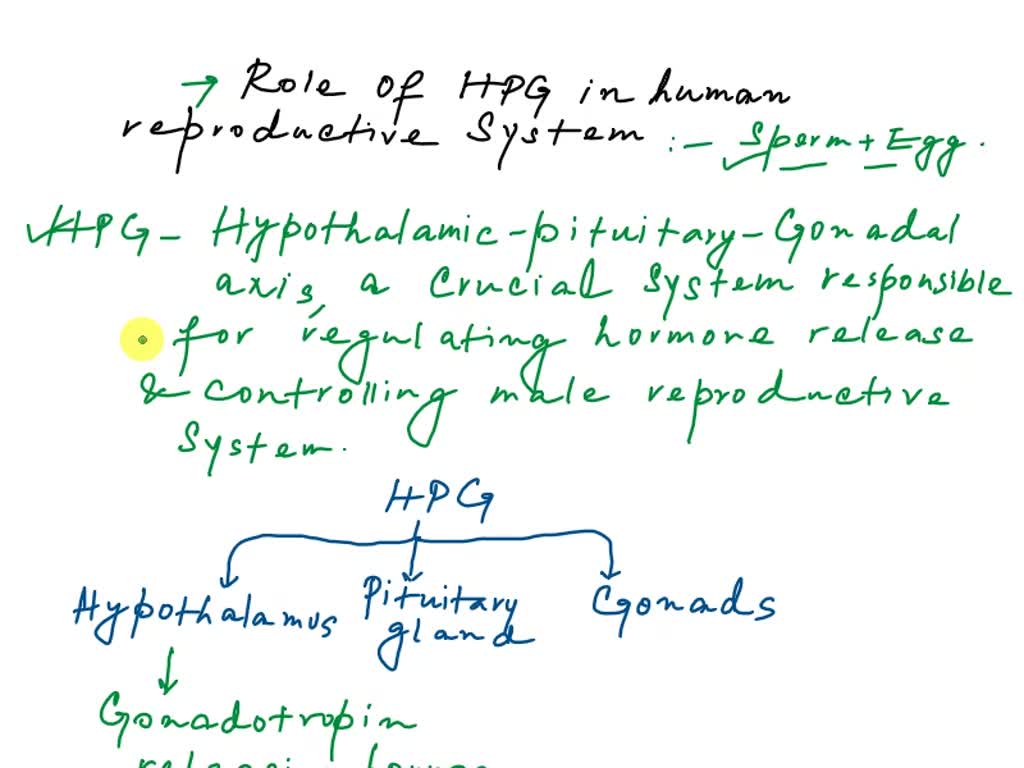 → Role of HPG in human
reproductive System :- Sperm + Egg.
HPG - Hypothalamic-pituitary-Gonadal
axis, a Crucial System responsible
for regulating hormone release
& controlling male reproductive
System.
HPG
Hypothalamus Pituitary gland Gonads
Gonadotropin